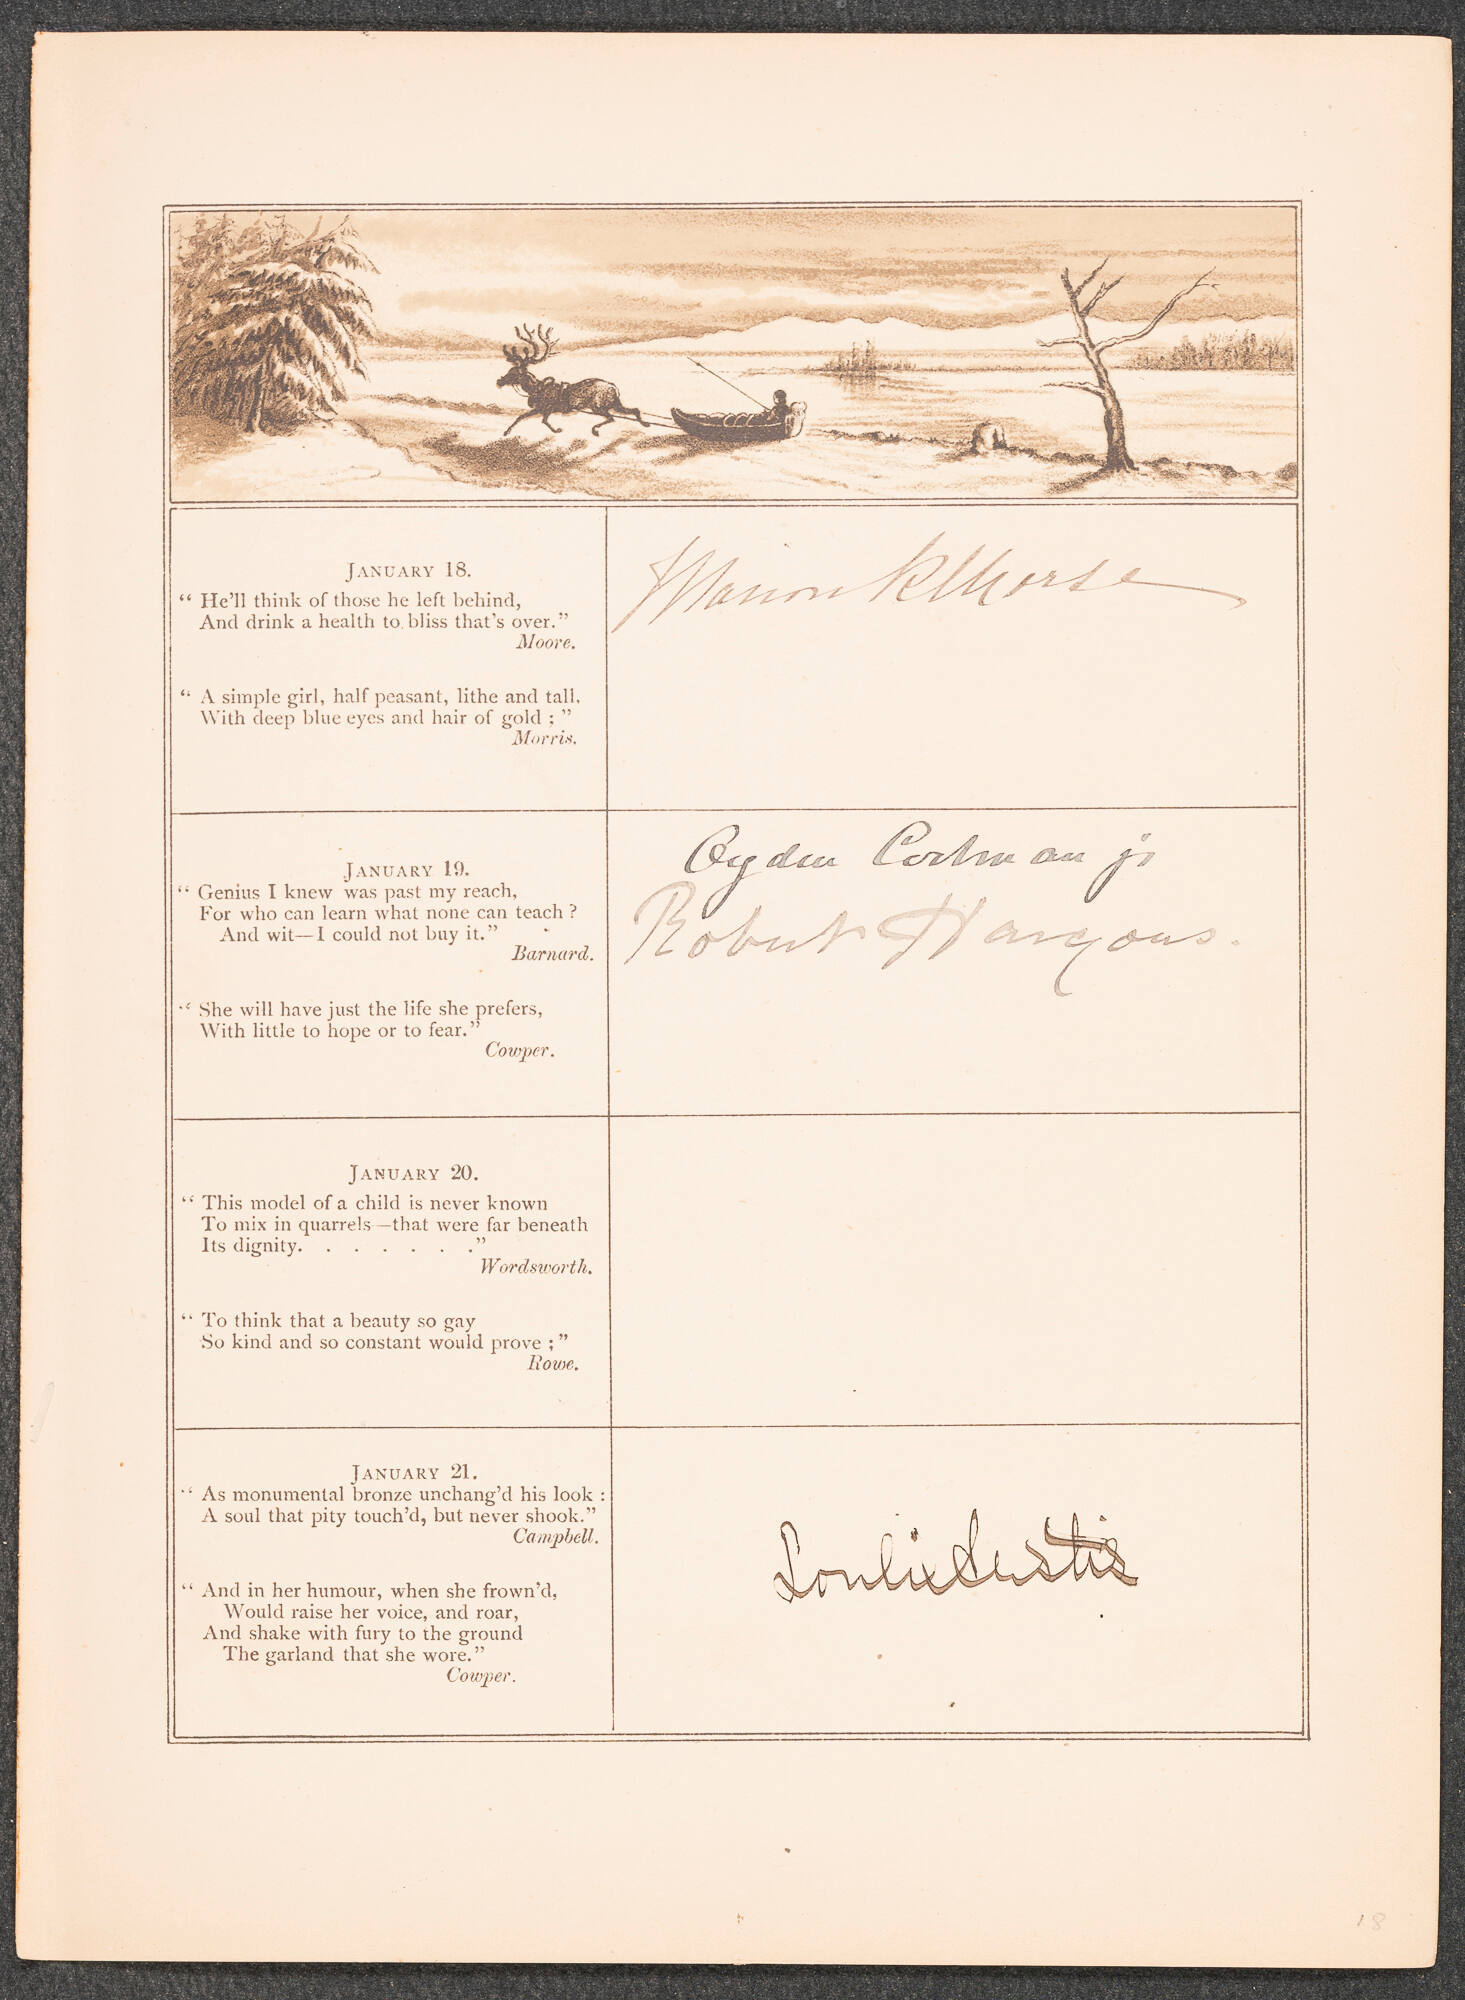 JANUARY 18.
“ He'll think of those he left behind,
And drink a health to bliss that's over.”
Moore.
“ A simple girl, half peasant, lithe and tall,
With deep blue eyes and hair of gold ; ”
Morris.
Marion K Morse
JANUARY 19.
“ Genius I knew was past my reach,
For who can learn what none can teach ?
And wit—I could not buy it.”
Barnard.
“ She will have just the life she prefers,
With little to hope or to fear.”
Cowper.
Ogden Codman jr
Robert Hargous.
JANUARY 20.
“ This model of a child is never known
To mix in quarrels—that were far beneath
Its dignity. . . . . . .”
Wordsworth.
“ To think that a beauty so gay
So kind and so constant would prove ; ”
Rowe.
JANUARY 21.
“ As monumental bronze unchang'd his look :
A soul that pity touch'd, but never shook.”
Campbell.
“ And in her humour, when she frown'd,
Would raise her voice, and roar,
And shake with fury to the ground
The garland that she wore.”
Cowper.
Loulie Eustis
18